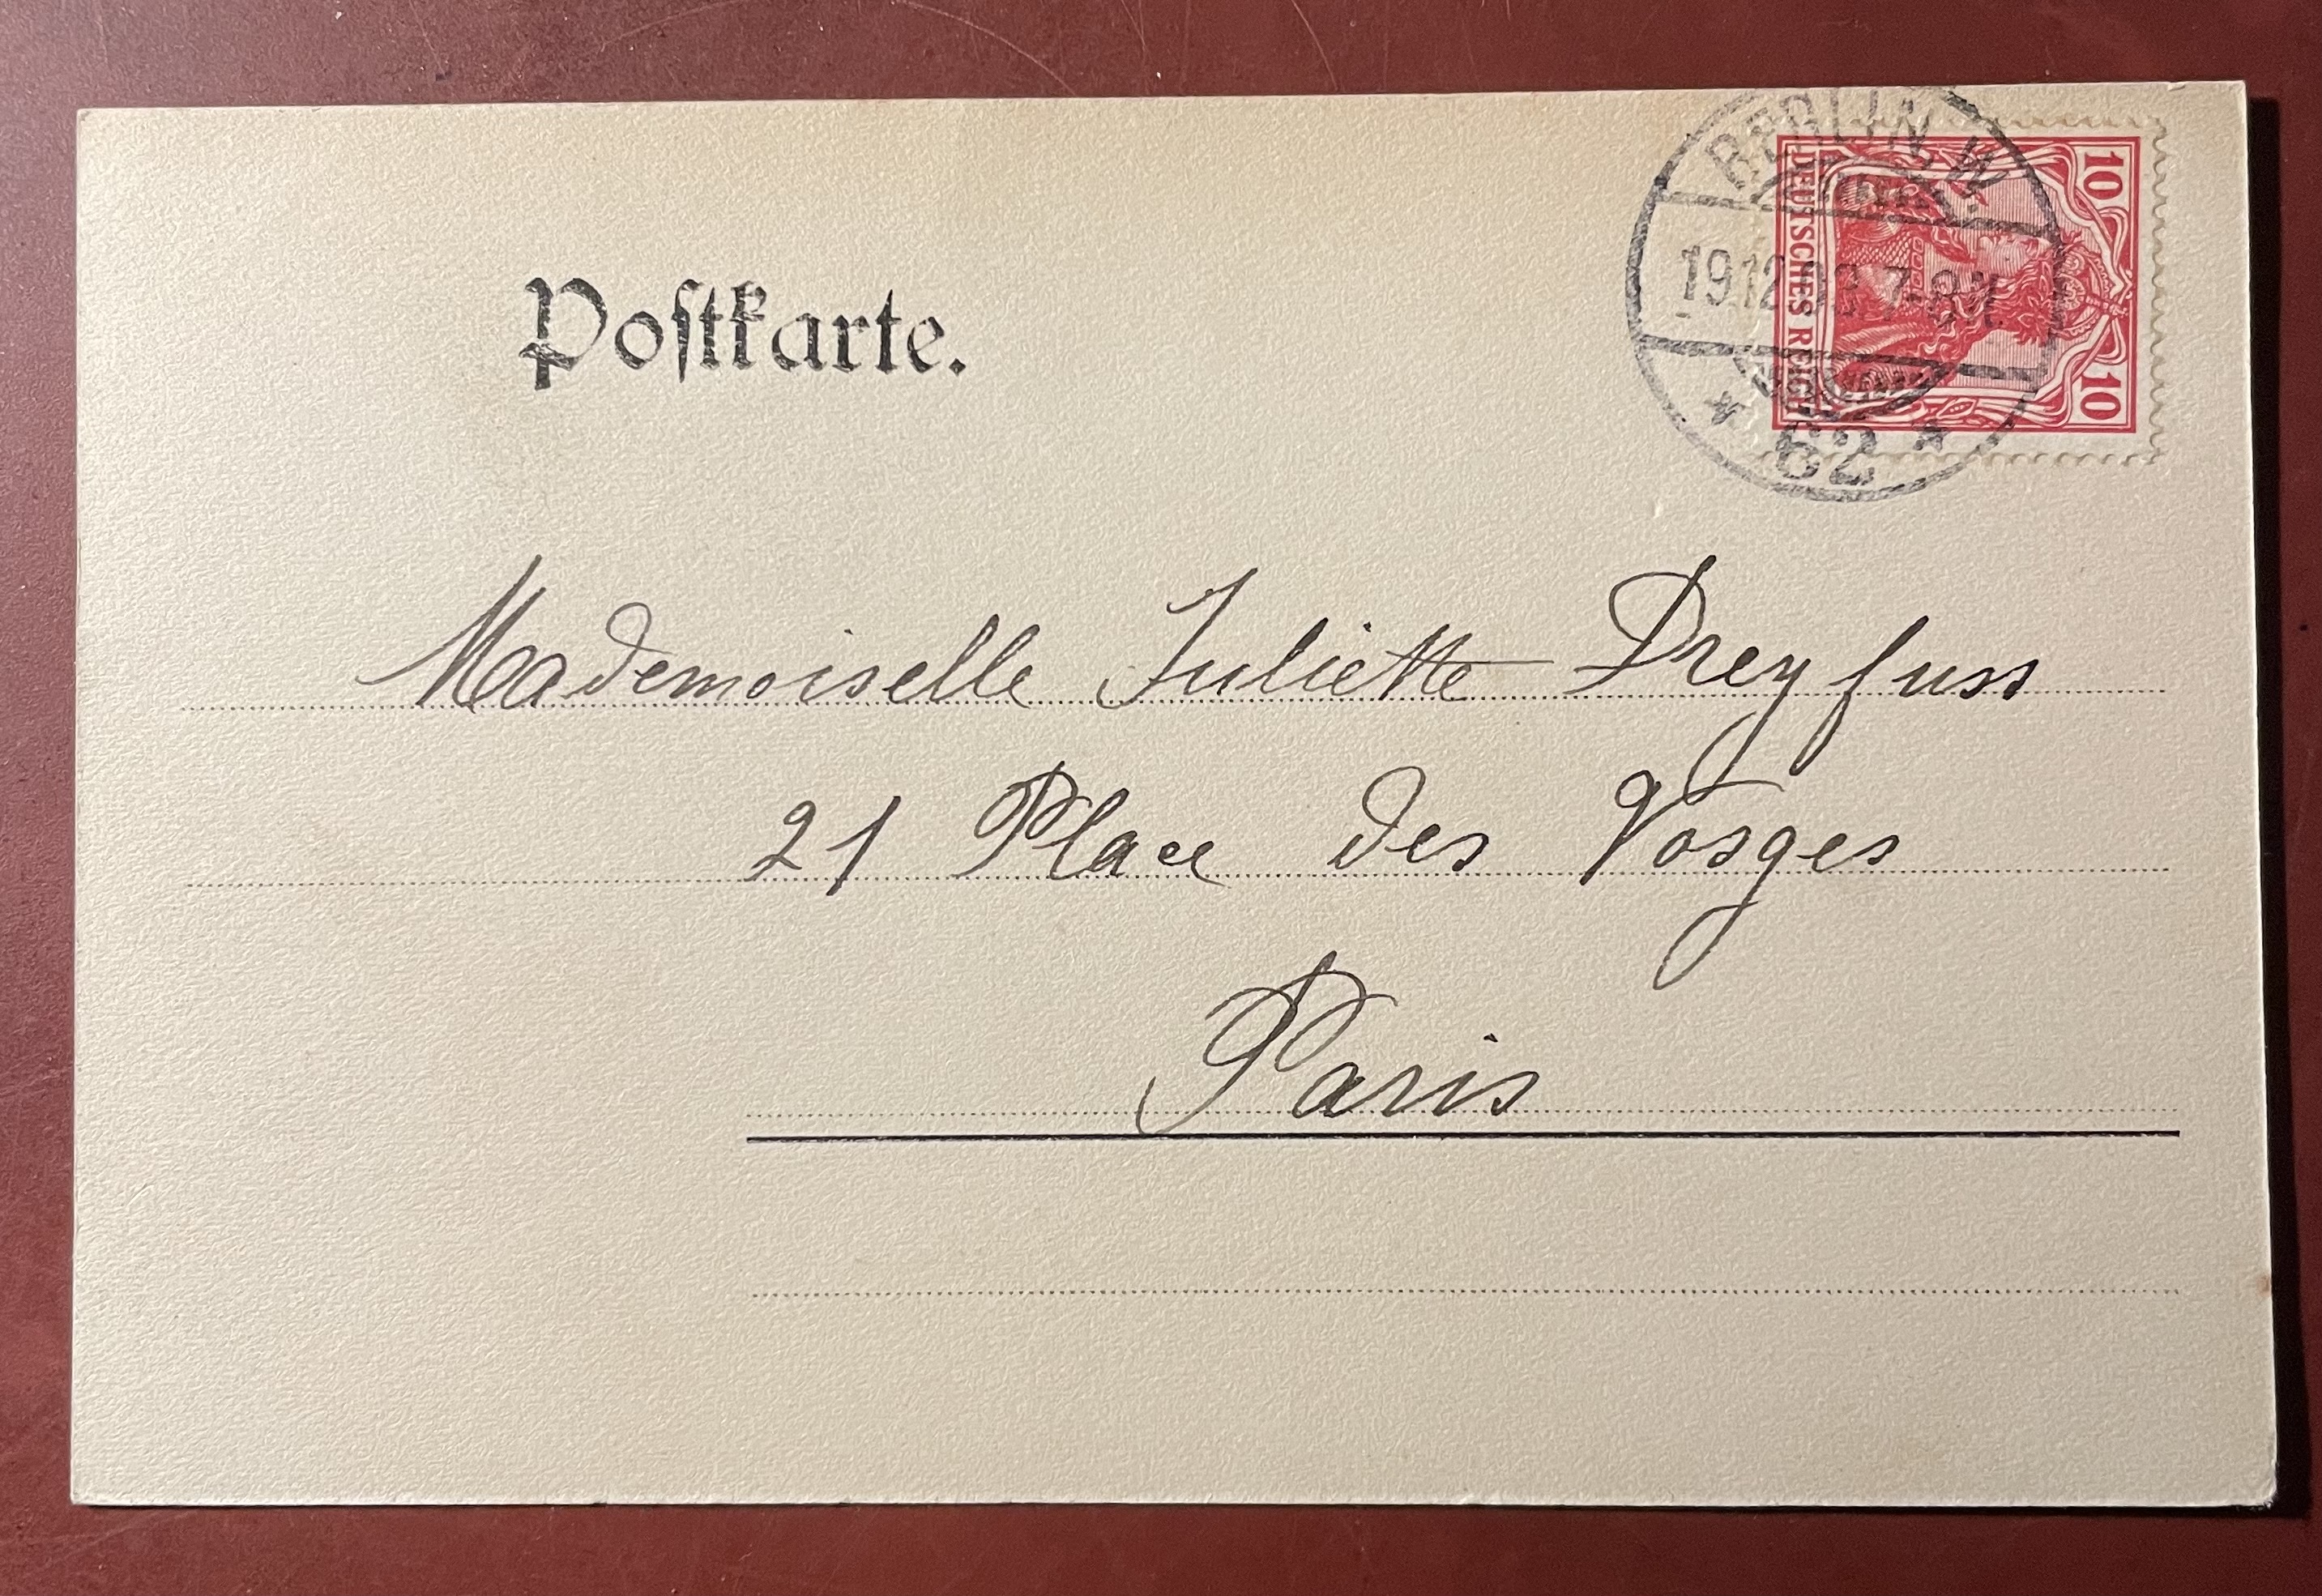 Postkarte.
BERLIN, W.
19.12. 7-8
* 62 *
10
DEUTSCHES REICH
10
Mademoiselle Juliette Dreyfuss
21 Place des Vosges
Paris